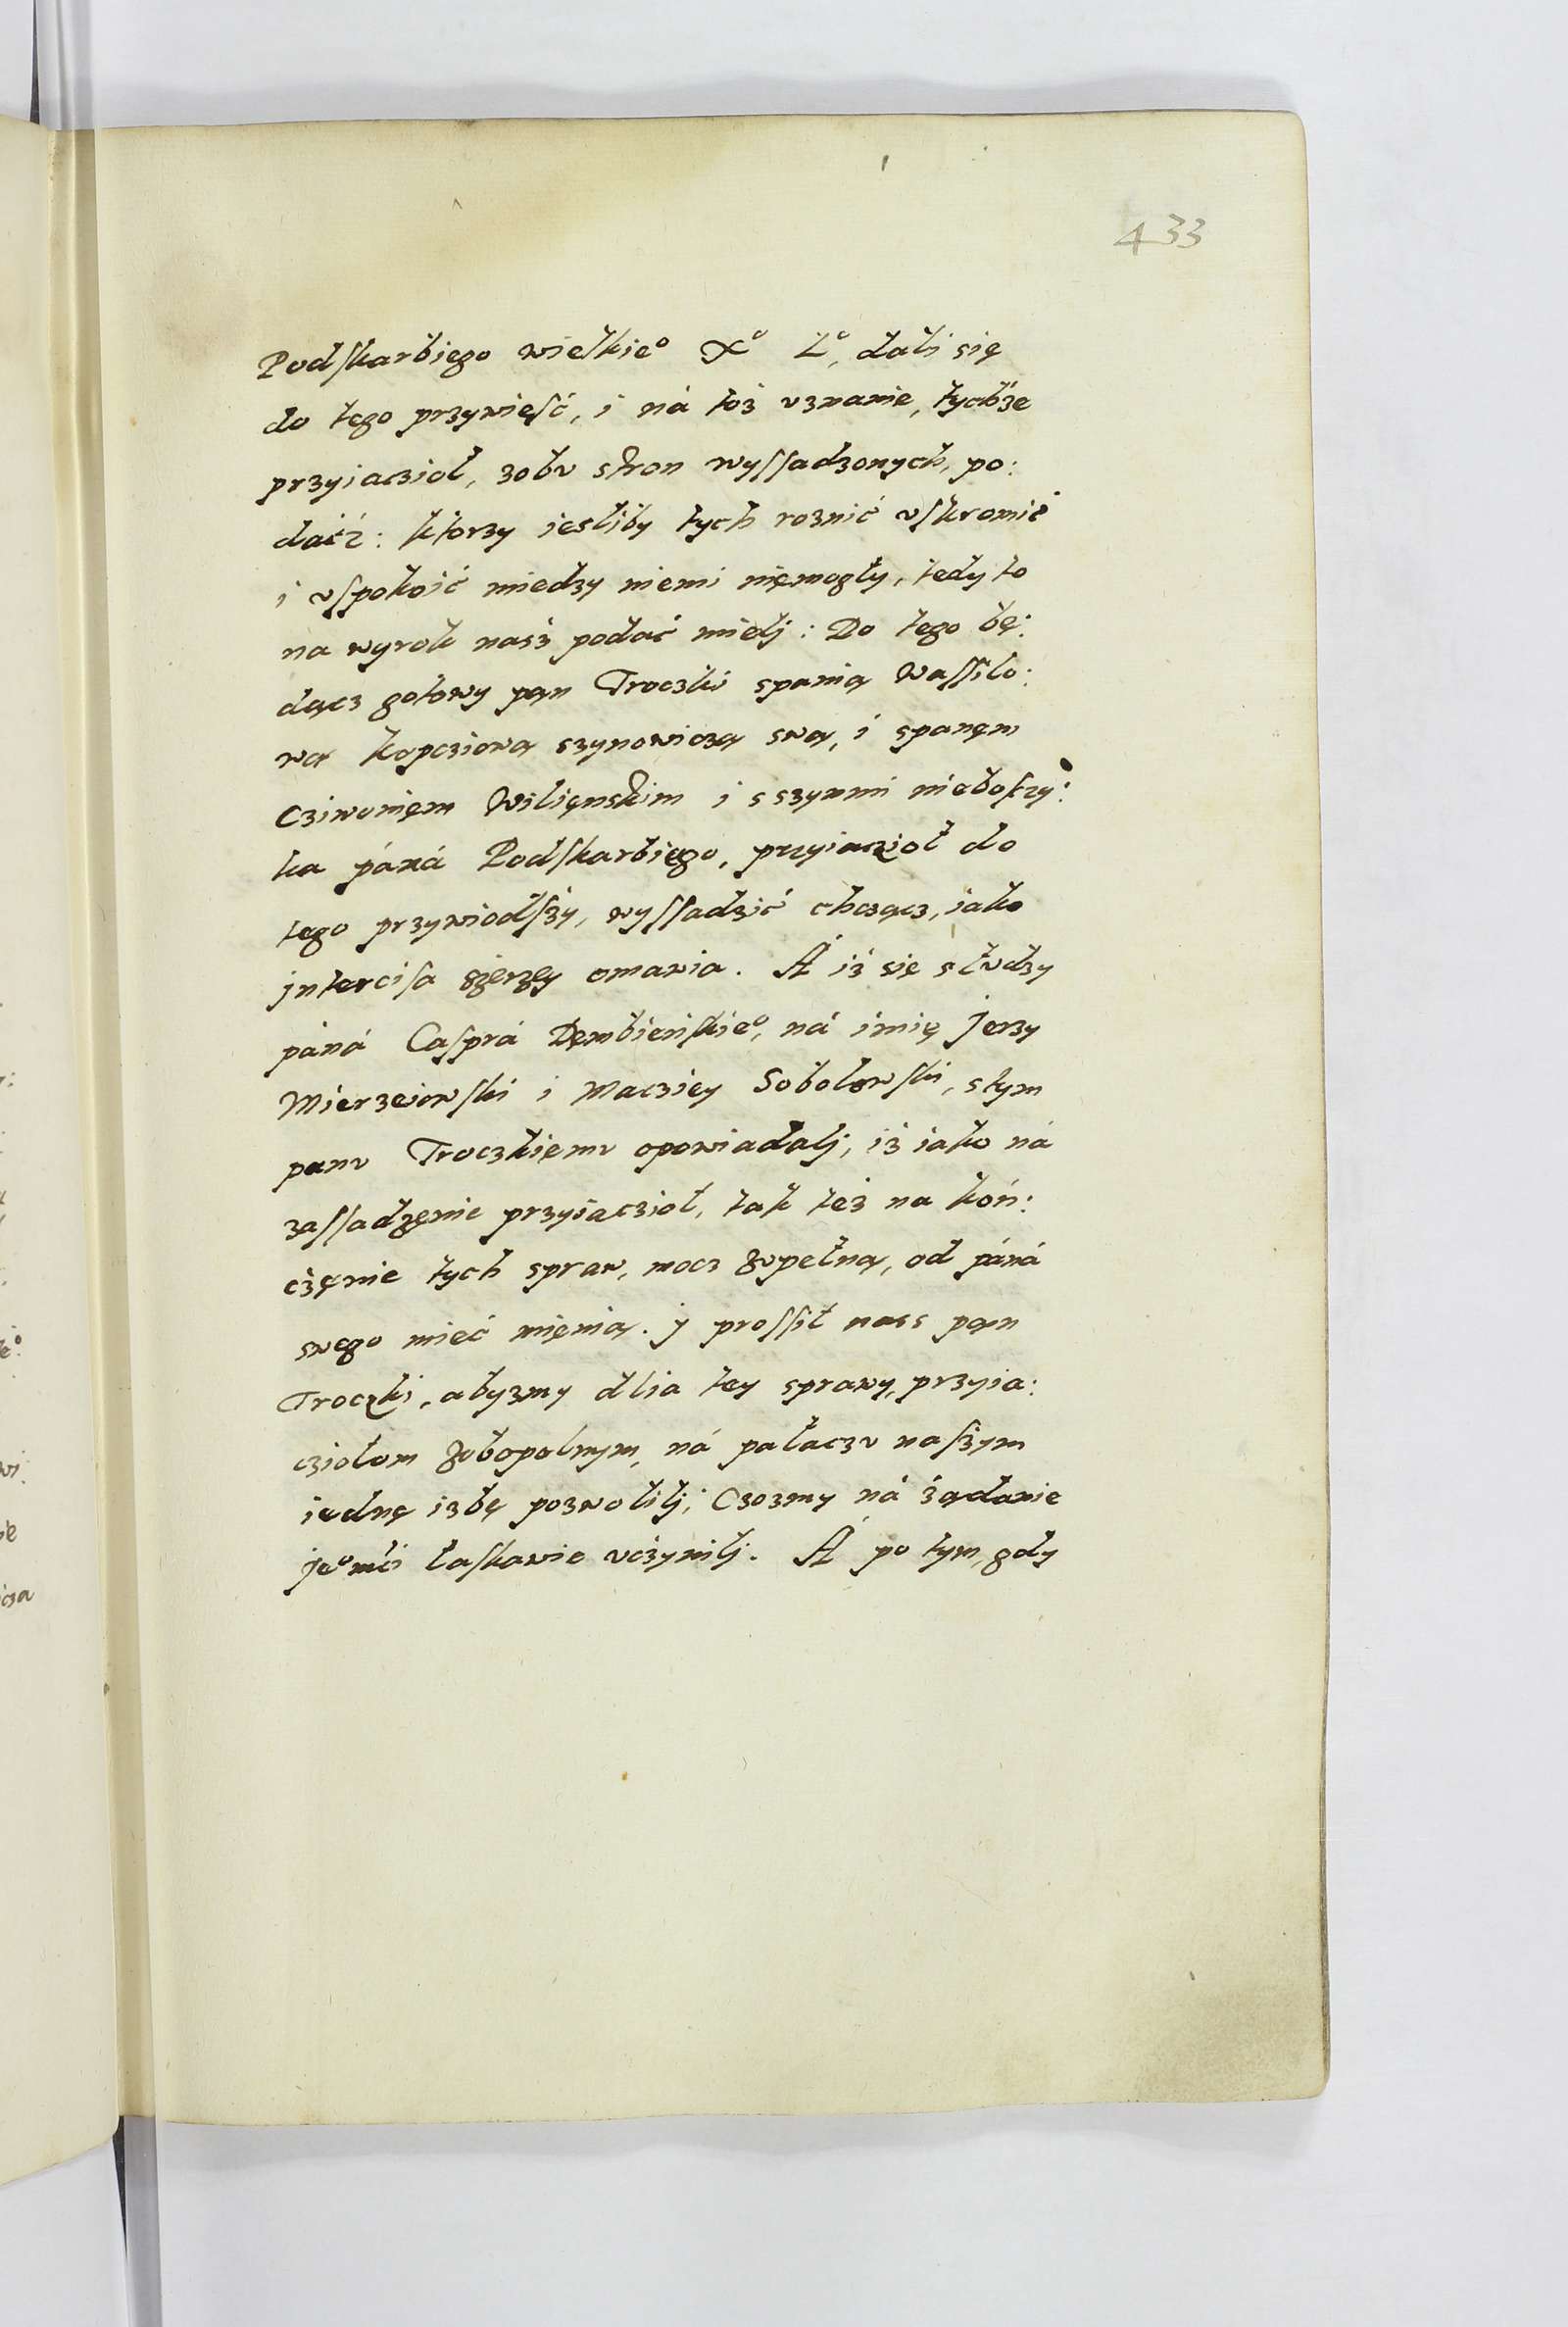 433
Podſkarbiego wielkie° X° L°, dali się
do tego przywięść, i ná toż vznanie, tychże
przyiaczioł, zobv stron wyſſadzonych, po:
dáćz: ktorzy iesliby tych roznić vſkromić
i vſpokoić miedzy niemi nięmogły, tedy to
na wyrok nasż podać mielj: Do tego bę:
dącz gotowy pąn Troczki spanią Waſſilo:
wą Kopcziową szynowiczą swą, i spanęm
Cziwonięm Wilięnskim i sszynmi nieboſzy:
ka páná Podſkarbięgo, przyiaczioł do
tego przywiodſży, wyſſadzić chcząc, iako
jnterciſa szerzęy omawia. Á iż się słvdzy
páná Caſprá Dęmbieńſkie°, ná imię Jerzy
Mierzeiowſki i Macziey Sobolowſki, stym
panv Troczkięmv opowiadalj, iż iako ná
zaſſadzęnie przyiaczioł, tak też na koń:
częnie tych spraw, mocz zvpełną, od páná
swego mieć mięnią. j proſſił nass pąn
Troczki, abyzmy dlia tey sprawy, przyia:
cziołom zobopolnym, ná pałaczv naſżym
iednę izbę pozwolilj; Czozmy ná żądanie
je°mći łaſkawie vczynilj. Á po tym, gdy